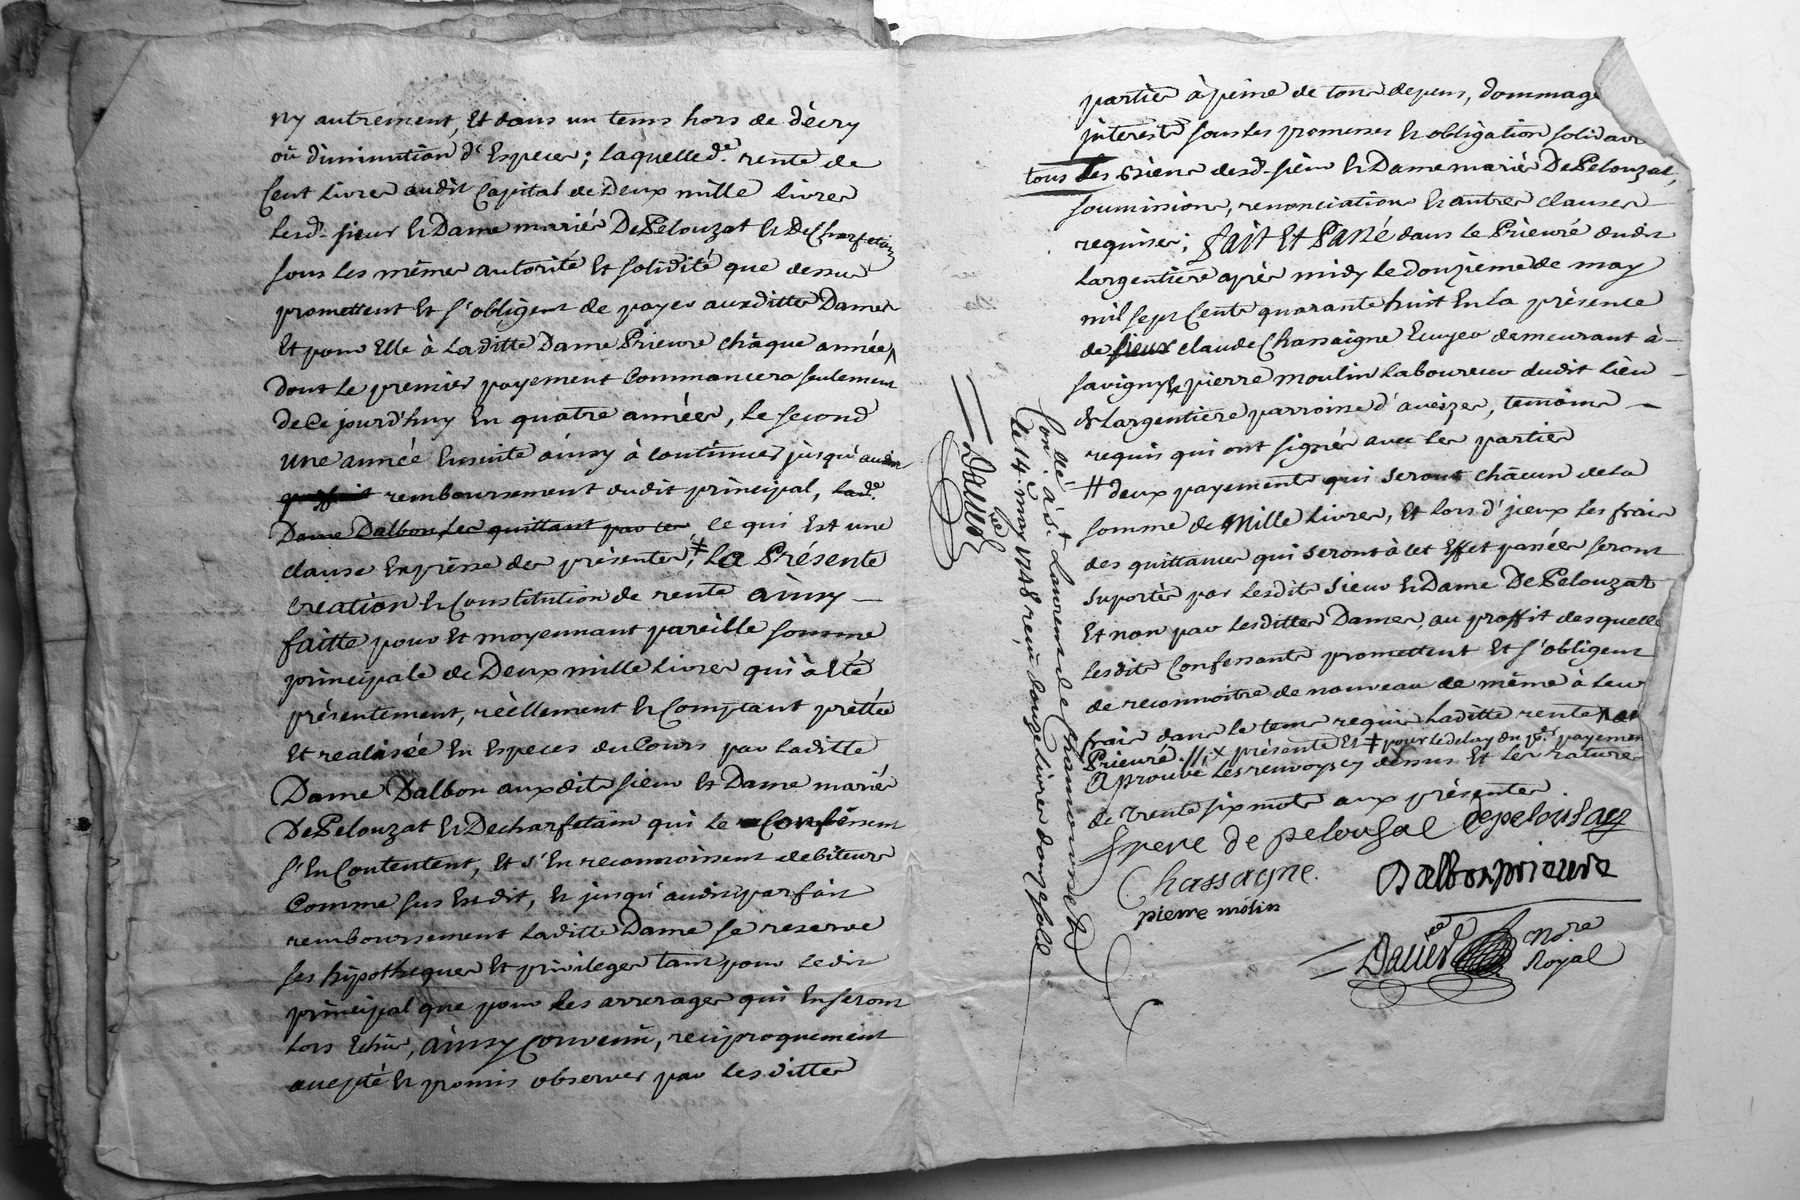 ny autrement, et dans un tems hors de décry
où diminution d'Especes; laquelle de. rente de
Cent livres audit Capital de Deux mille livres
lesd. sieur et Dame mariés DePelouzat et De Charfetain
sous les mêmes autorité et solidité que dessus
promettent et s'obligent de payer auxdittes Dames
et pour Elle à laditte Dame Prieure châque année,
dont le premier payement commancera seulement
de ce jourd'huy en quatre années, le second
une année ensuite ainsy à continuer jusqu'audit
parfait remboursement dudit principal, lade.
Dame Dalbon les quittant par ce ce qui est une
clause expresse des présentes, ‡ La Présente
Creation et Constitution de rente ainsy —
faitte pour et moyennant pareille somme
principale de Deux mille livres qui à eté
présentement, réellement et Comptant prêttée
et realisée en especes du Cours par laditte
Dame Dalbon auxdits sieur et Dame mariés
DePelouzat et Decharfetain qui le Confessent
s'en Contentent, et s'en reconnoissent debiteurs
Comme sus est dit, et jusqu'audit parfait
remboursement laditte Dame se reserve
ses hipotheques et privileges tant pour ledit
principal que pour les arrerages qui en seront
lors echûs, ainsy convenu, reciproquement
accepté et promis observer par lesdittes
parties à peine de tous depens, dommage
interests sous les promesses et obligation solidaire
tous les siens desd. sieur et Dame mariés DePelouzat,
soumissions, renonciations et autres clauses
requises; fait et Passé dans le Prieuré dudit
Largentiere après midy le douzieme de may
mil sept Cents quarante huit en la présence
de sieur claude Chassaigne Ecuyer demeurant à —
savigny, et pierre moulin laboureur dudit lieu —
de largentiere parroisse d'aveizes, temoins —
requis qui ont signés avec les parties
# deux payements qui seront châcun de la
somme de Mille livres, et lors d'jceux les frais
des quittances qui seront à cet effet passées seront
suportés par lesdits sieur et Dame DePelouzat
et non par lesdittes Dames, au proffit desquelle
lesdits Confessants promettent et s'obligent
de reconnoitre de nouveau de même à leur
frais dans le tems requis laditte rente
Prieuré. // x présente et ‡ pour le delay du pr. payement
Aprouvé les renvoys cy dessus et les ratures
de trente six mots aux présentes.
frere de pelousat depelousat
Chassagne. Dalbon prieure
pierre molin
Nore
Royal
Conlé à St. Laurent de Chamousset
le 14. may 1748 reçu douze livres douze sols